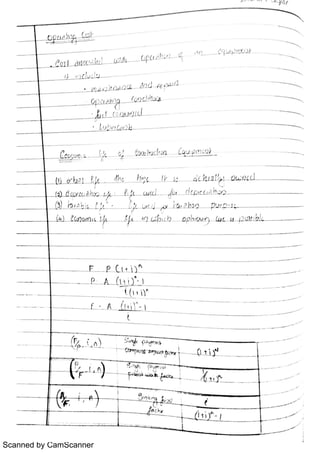 Operating Cost
Cost associated with operation of an equipment
it includes
• maintenance and repairs
operating conditions
fuel
• Lubricants
life of Construction Equipment
(1) actual life the it is actually owned
(2) depreciation life life used for depreciation
(3) taxable life - life used for taxation purpose
(4) Economic life life in which optimum use is possible
F P (1+i)ⁿ
P A (1+i)ⁿ-1
i(1+i)ⁿ
F - A (1+i)ⁿ-1
i
(F/P, i, n) Single payment (1+i)ⁿ
Compound amount factor
(P/F, i, n) Single payment 1/(1+i)ⁿ
present worth factor
(A/F, i, n) Sinking fund i
factor (1+i)ⁿ-1
Scanned by CamScanner